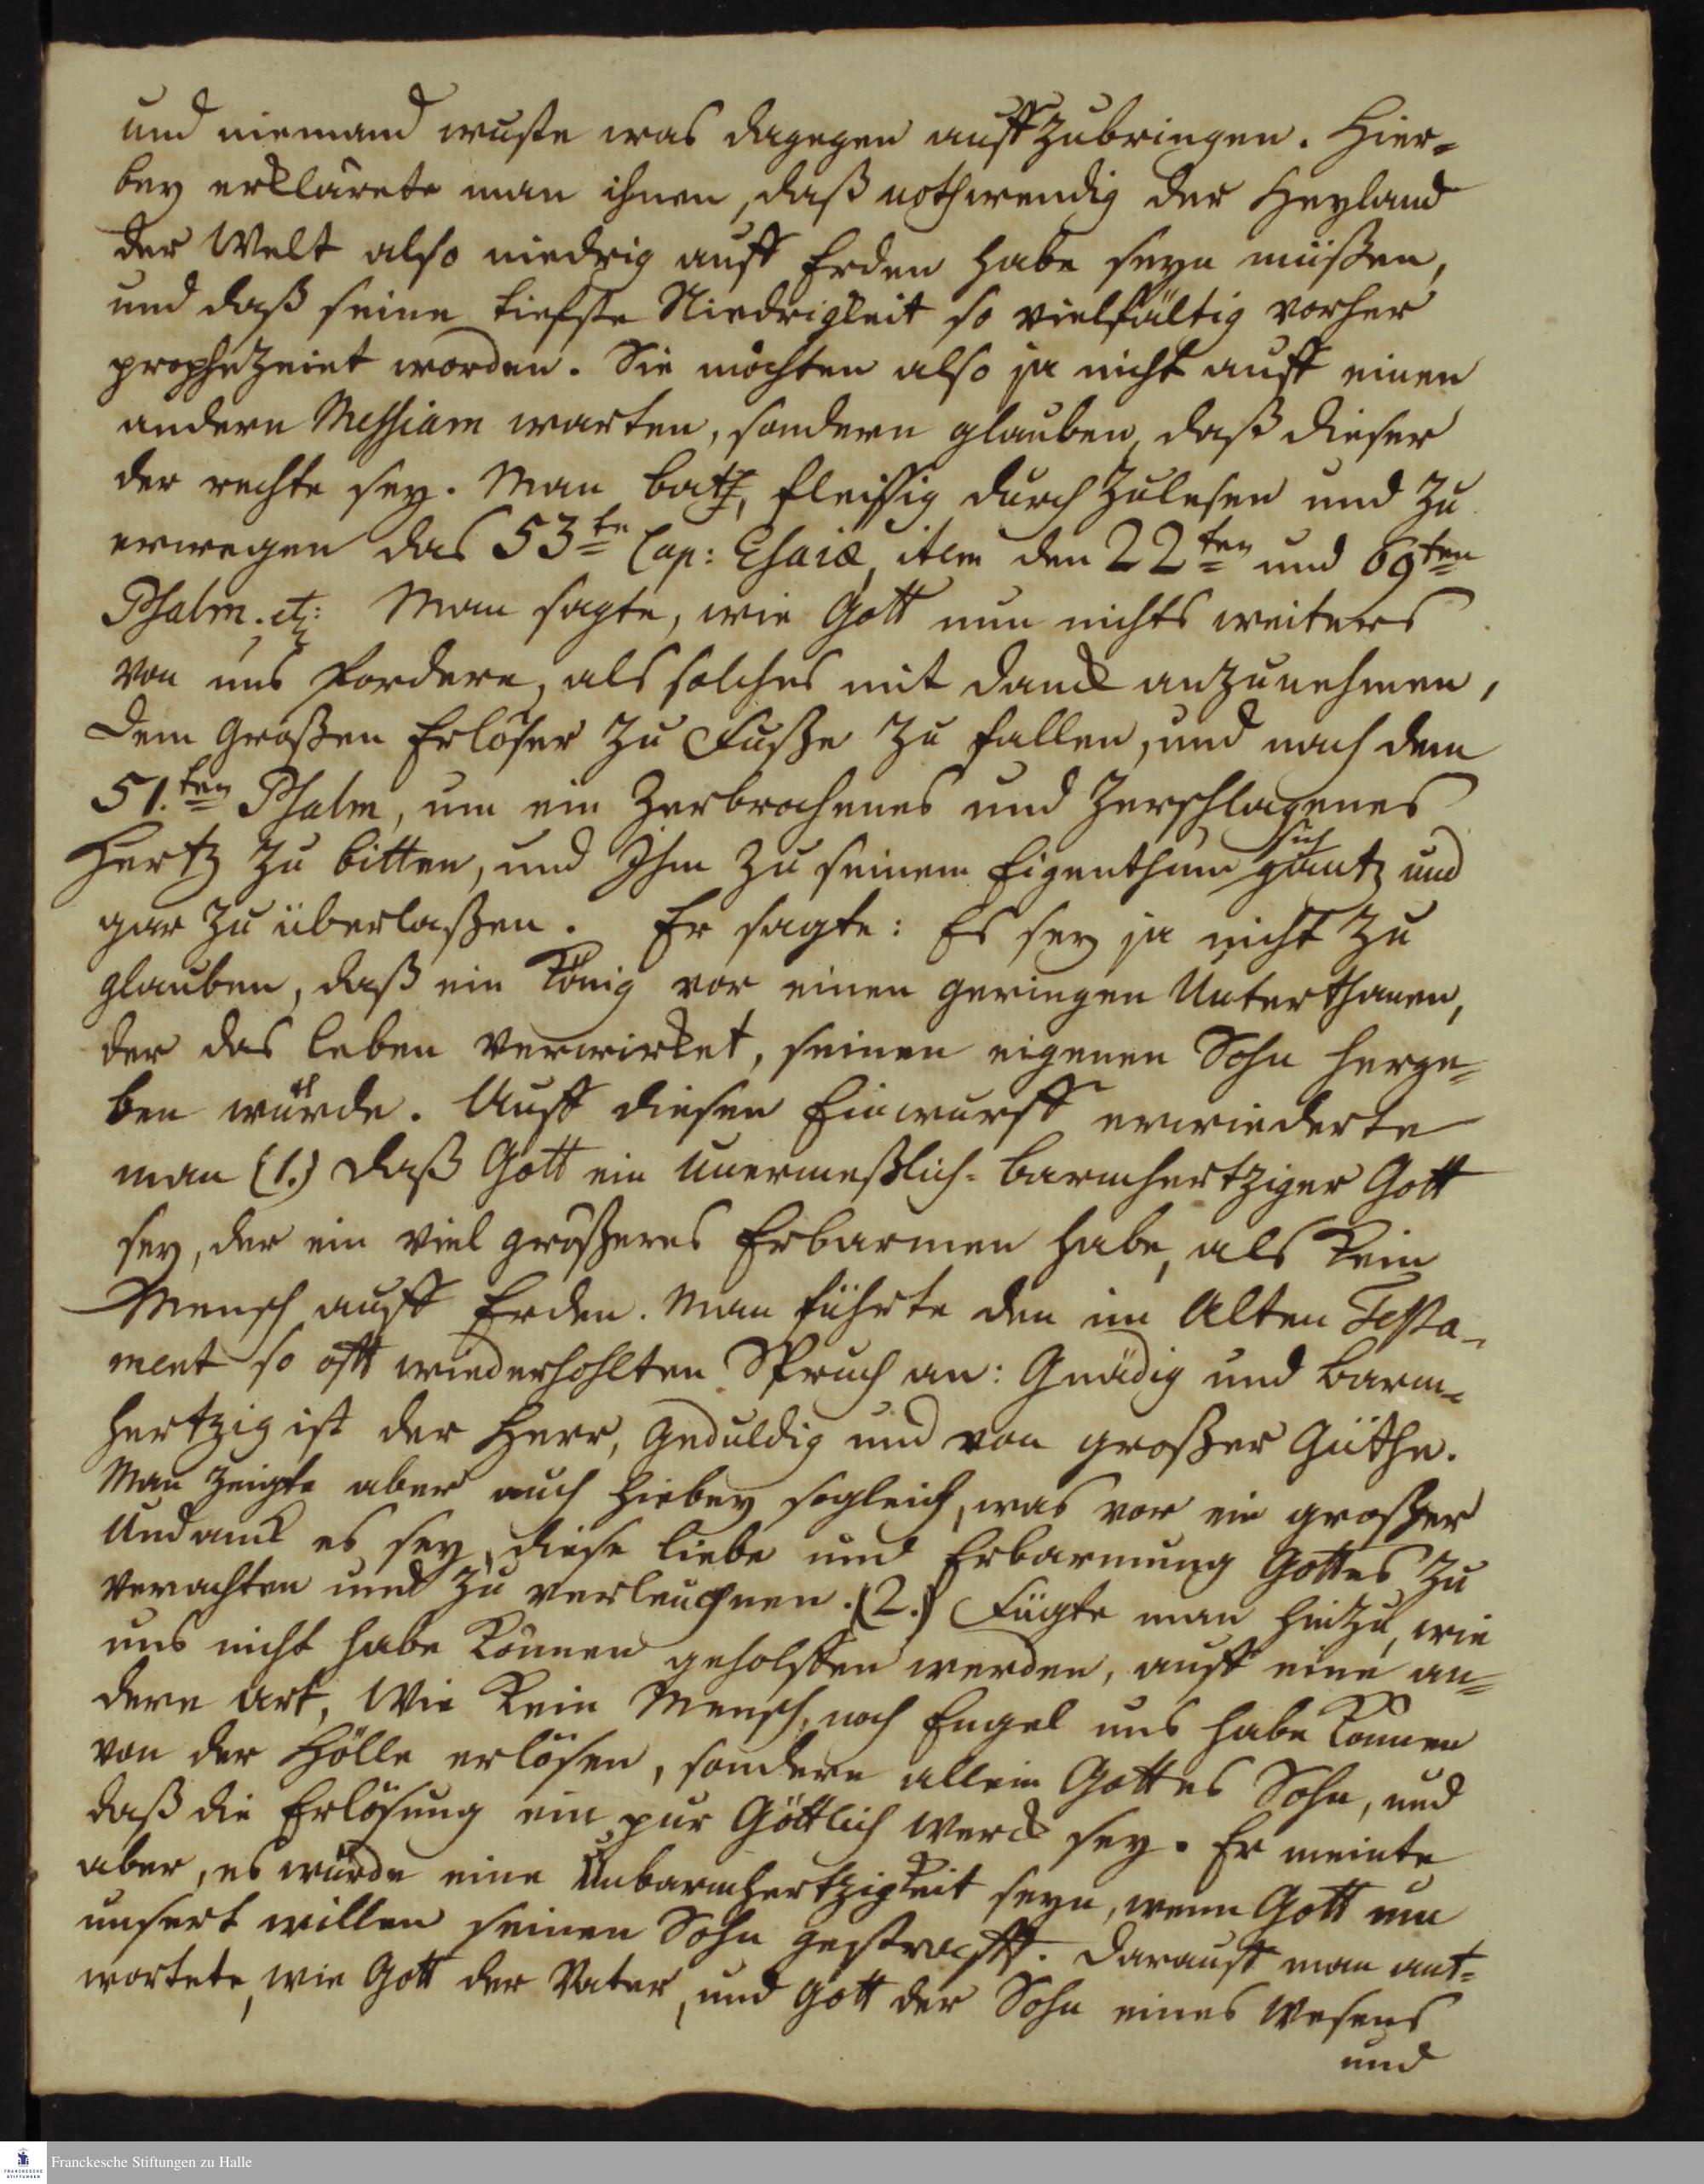 und niemand wuste was dagegen auffzubringen. Hier=
bey erklärete man ihnen, daß nothwendig der Heyland
der Welt also niedrig auff Erden habe seyn müßen,
und daß seine tiefste Niedrigkeit so vielfältig vorher
prophezeiet worden. Sie möchten also ja nicht auff einen
andern Messiam warten, sondern glauben, daß dieser
der rechte sey. Man bath, fleissig durchzulesen und zu
erwegen das 53te Cap: Esaiæ, item den 22ten und 69ten
Psalm. etz: Man sagte, wie Gott nun nichts weiters
von uns fordere, als solches mit danck anzunehmen,
dem Großen Erlöser zu Fuße zu fallen, und nach dem
51.ten Psalm, um ein Zerbrochenes und Zerschlagenes
Hertz zu bitten, und Ihm zu seinem Eigenthum sich gantz und
gar zu überlaßen. Er sagte: Es sey ja nicht zu
glauben, daß ein König vor einen geringen Unterthanen,
der das Leben verwirket, seinen eigenen Sohn herge=
ben würde. Auff diesen Einwurff erwiederte
man (1.) daß Gott ein unermeßlich=barmhertziger Gott
sey, der ein viel größeres Erbarmen habe, als kein
Mensch auff Erden. Man führte den im Alten Testa=
ment so offt wiederhohlten Spruch an: Gnädig und barm=
hertzig ist der Herr, Geduldig und von großer Güthe.
Man zeigte aber auch hiebey sogleich, was vor ein großer
Undanck es sey, diese Liebe und Erbarmung Gottes zu
verachten und zu verleugnen. (2.) Fügte man hinzu, wie
uns nicht habe können geholffen werden, auff eine an=
dere Art, Wie kein Mensch, noch Engel uns habe können
von der Hölle erlösen, sondern allein Gottes Sohn, und
daß die Erlösung ein pur Göttlich Werck sey. Er meinte
aber, es würde eine Unbarmhertzigkeit seyn, wenn Gott um
unsert willen seinen Sohn gestrafft. Darauff man ant=
wortete, wie Gott der Vater, und Gott der Sohn eines Wesens
und
FRANCKESCHE STIFTUNGEN
Franckesche Stiftungen zu Halle